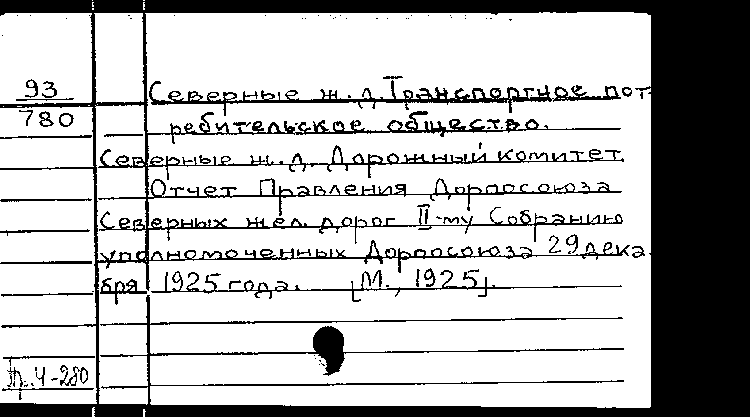 93
780
Северные ж.д. Транспортное пот-
ребительское общество.
Северные ж.д. Дорожный комитет.
Отчет Правления Дорпосоюза
Северных жел. дорог II-му Собранию
уполномоченных Дорпосоюза 29 дека
бря 1925 года. [М., 1925].
Пр. 4-280